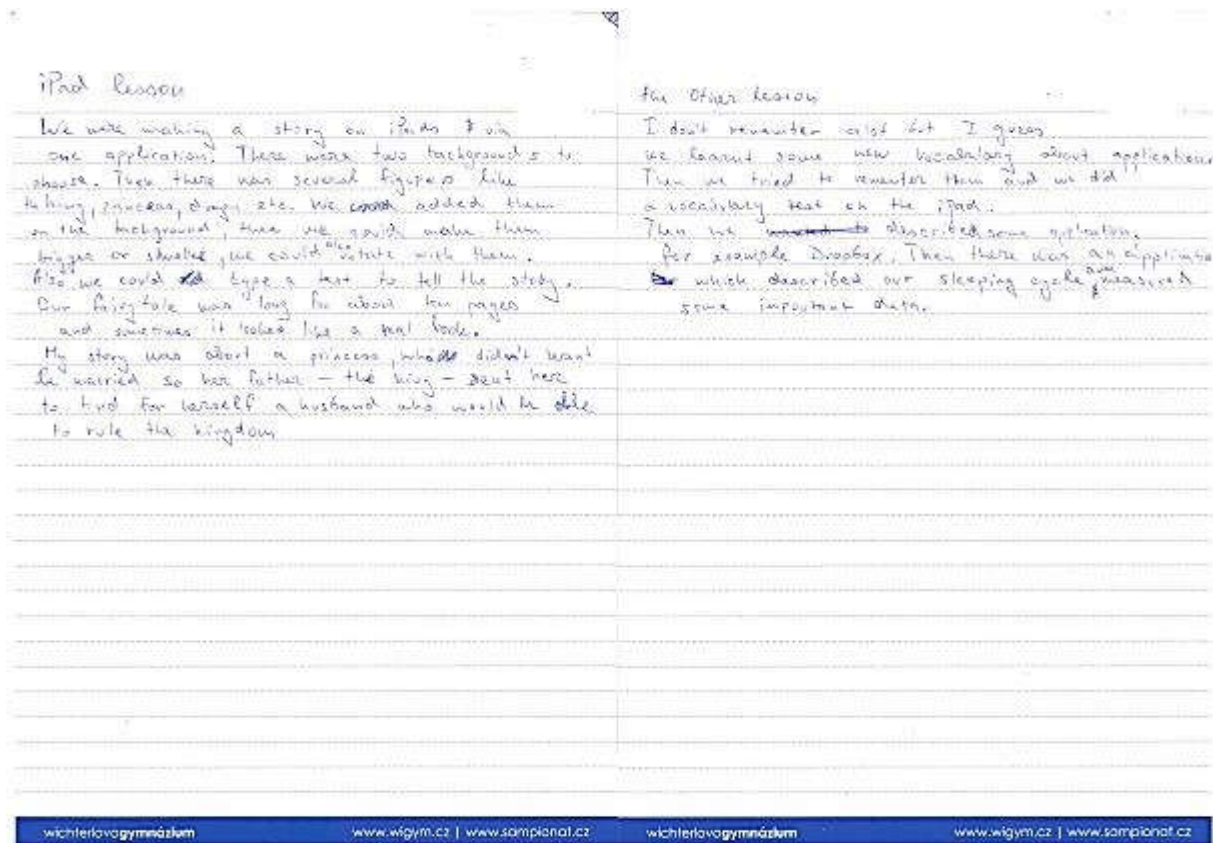 iPad lesson
We were making a story on iPads in
one application. There were two backgrounds to
choose. Then there was several figures like
king, princess, etc. We added them
on the background, then we could make them
bigger or smaller, we could also rotate with them.
Also we could type a text to tell the story.
Our fairytale was long for about ten pages
and sometimes it looked like a real book.
My story was about a princess, who didn't want
be married so her father – the king – sent her
to find for herself a husband who would be able
to rule the kingdom
the Other lesson
I don't remember a lot but I guess
we learnt some new vocabulary about applications
Then we tried to remember them and we did
a vocabulary test on the iPad.
Then we described some aplication,
for example Dropbox. Then there was an application
which described our sleeping cycle and measured
some important data.
wichterlovogymnázium www.wigym.cz | www.sampionat.cz
wichterlovogymnázium www.wigym.cz | www.sampionat.cz